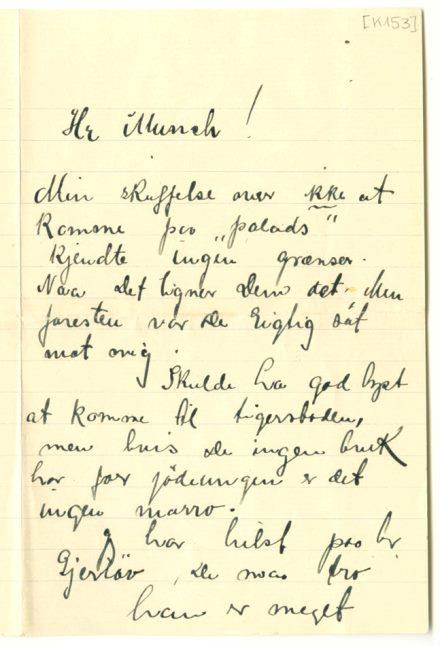 [K153]
Hr Munch!
Min skuffelse over ikke at
komme paa „palads"
kjendte ingen grænser.
Naa det ligner Dem det. Men
foresten var De rigtig søt
mot mig.
Skulde ha god lyst
at komme til tigerstaden,
men hvis De ingen bruk
har for jödeungen er det
ingen marro.
har hilst paa hr
Gjerløv, De maa tro
han er meget